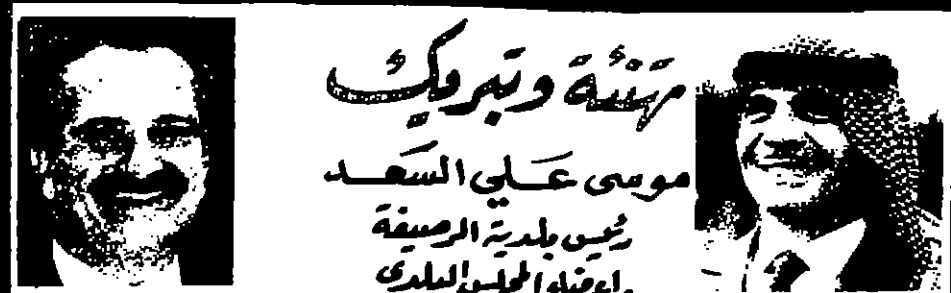 تهنئة وتبريك
موسى علي السعد
رئيس بلدية الرصيفة
واعضاء المجلس البلدي